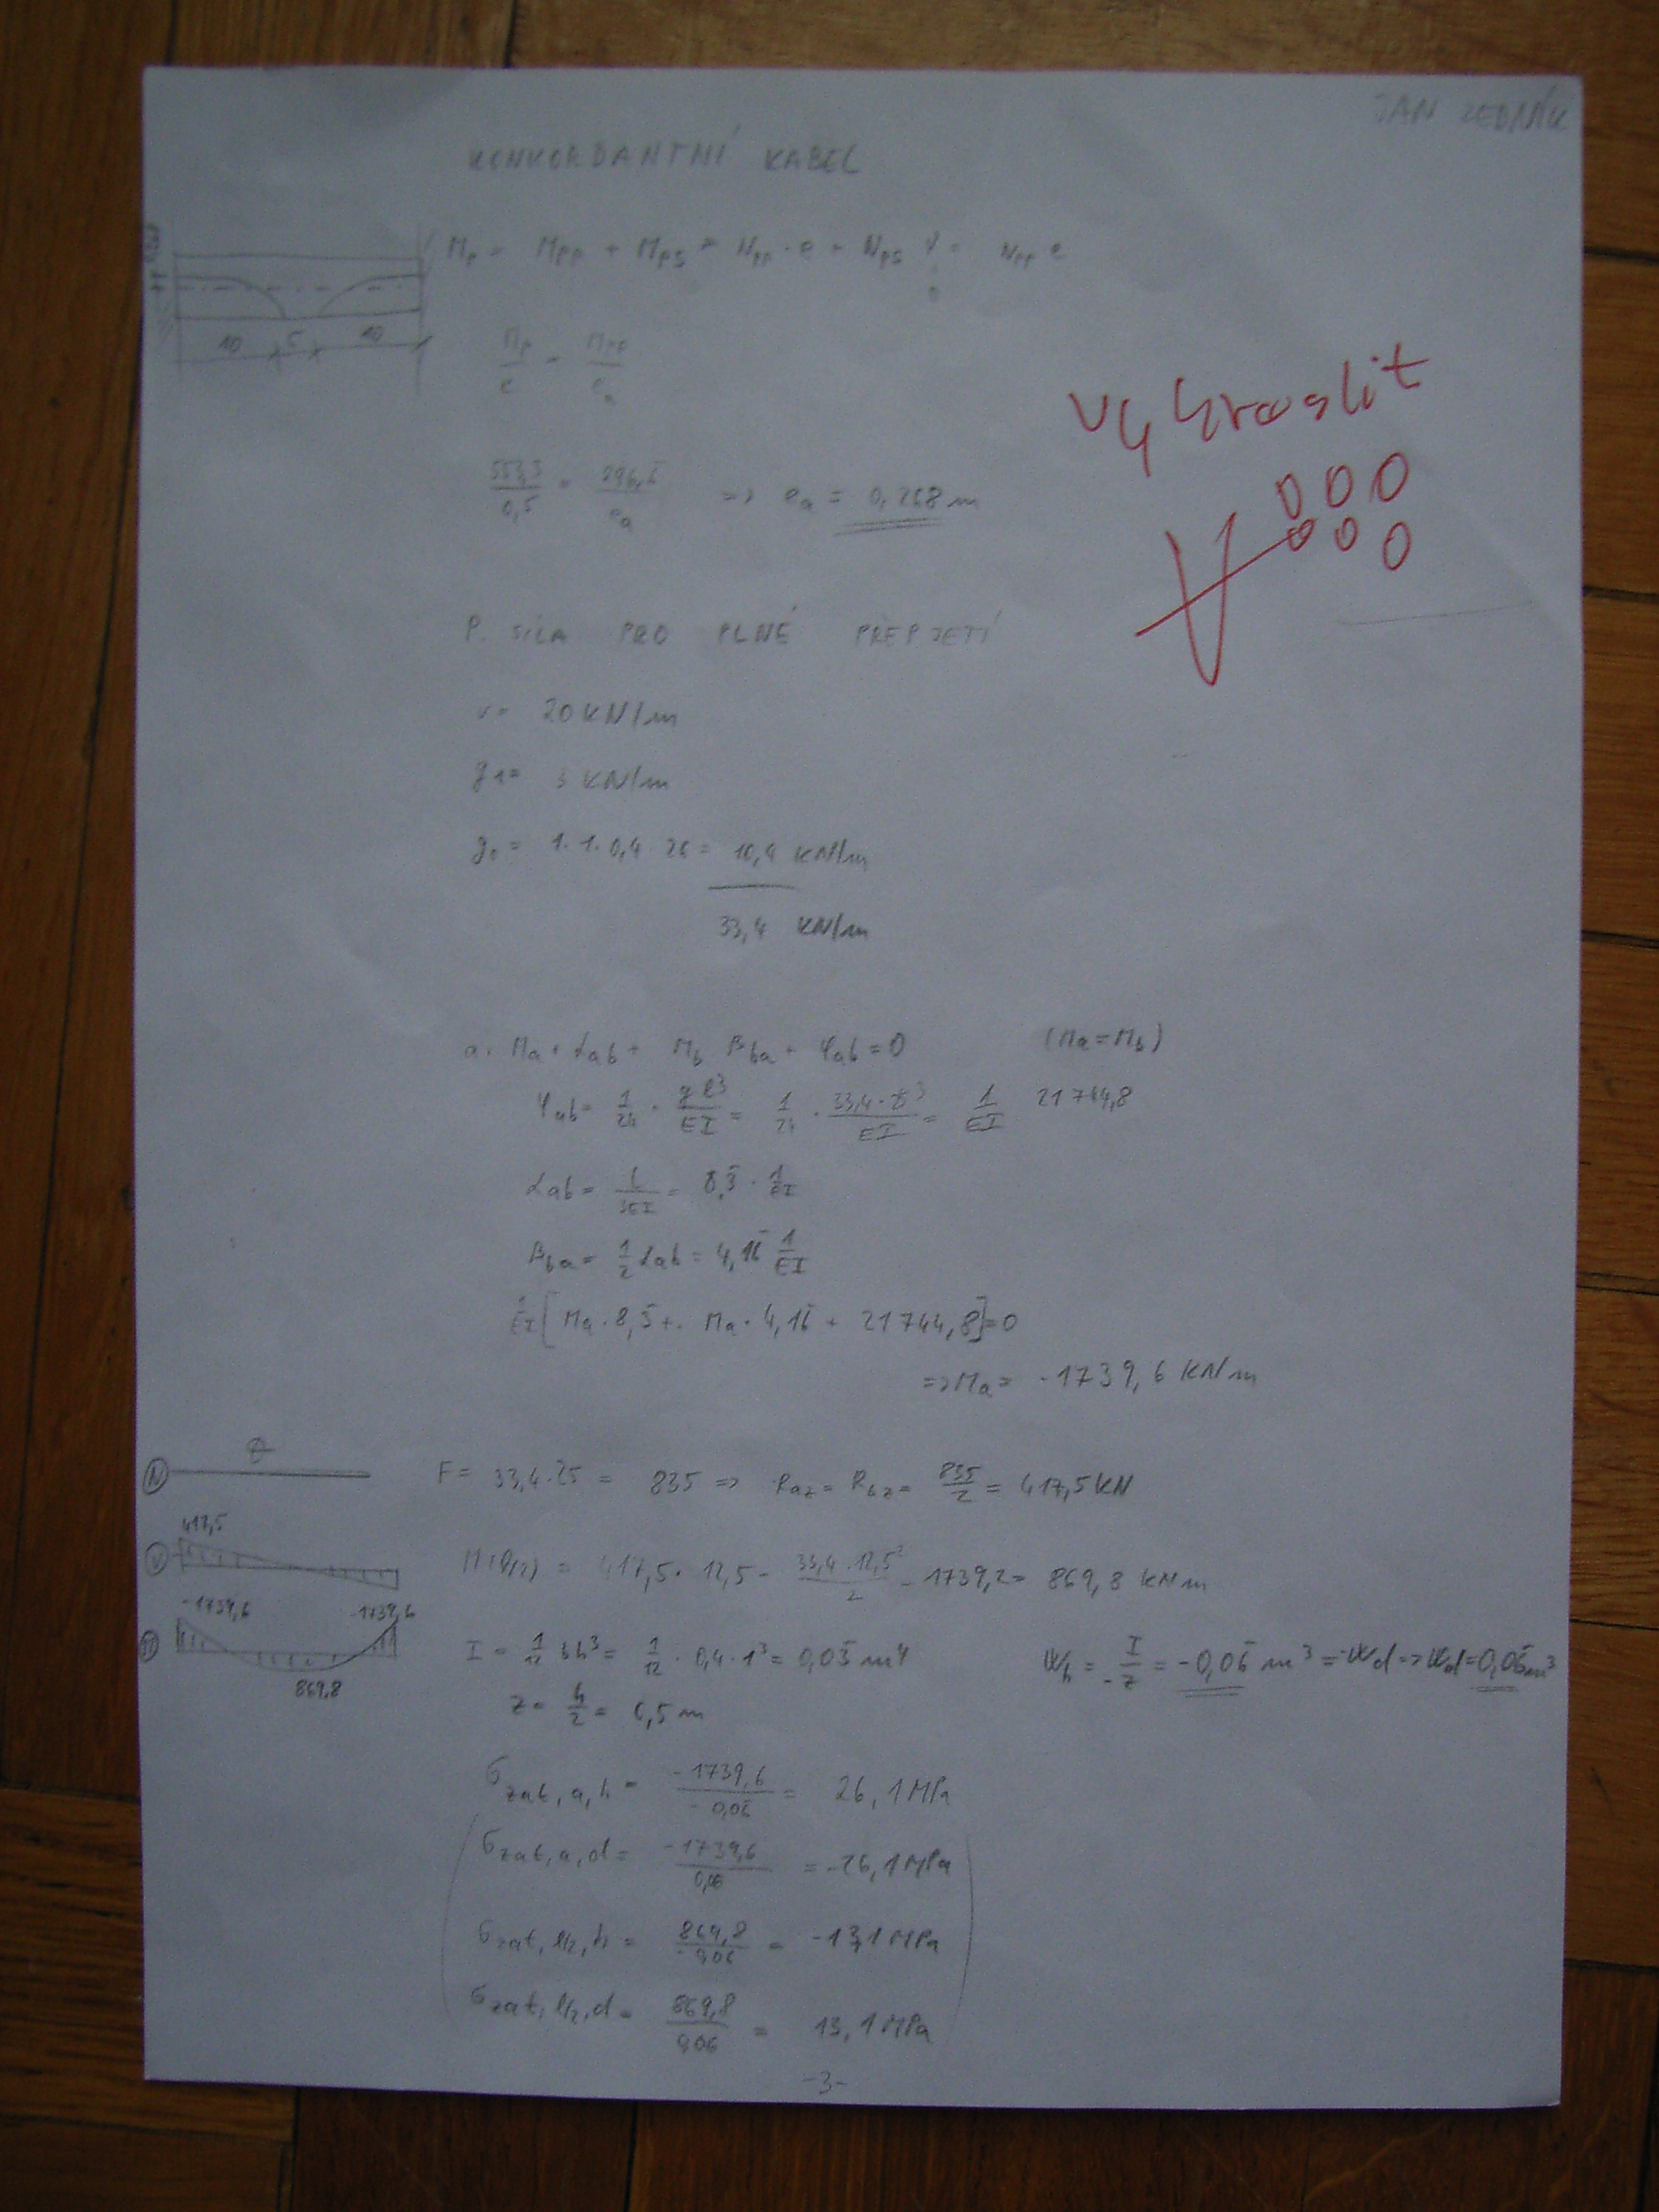 JAN ZEDNÍK
KONKORDANTNÍ KABEL
Mp = Mpp + Mps = Npp · e + Nps = Npp e
0
10 5 10
Mp/e = Mpp/ea
553,3/0,5 = 296,6/ea => ea = 0,268 m
vykroslit
000
000
P. SÍLA PRO PLNÉ PŘEPJETÍ
v = 20 KN/m
g1 = 3 KN/m
g0 = 1·1·0,4·26 = 10,4 KN/m
33,4 KN/m
a: Ma · αab + Mb βba + φab = 0 (Ma = Mb)
φab = 1/24 · gl³/EI = 1/24 · 33,4·25³/EI = 1/EI 21744,8
αab = l/3EI = 8,3̄ · 1/EI
βba = 1/2 αab = 4,16̄ 1/EI
1/EI [Ma · 8,3̄ + Ma · 4,16̄ + 21744,8] = 0
=> Ma = -1739,6 KNm
N 0
F = 33,4·25 = 835 => Raz = Rbz = 835/2 = 417,5 KN
417,5
V
M(l/2) = 417,5 · 12,5 - 33,4·12,5²/2 - 1739,2 = 869,8 KNm
-1739,6 -1739,6
M
869,8
I = 1/12 bh³ = 1/12 · 0,4·1³ = 0,03̄ m⁴
Wh = I/-z = -0,06̄ m³ = -Wd => Wd = 0,06̄ m³
z = h/2 = 0,5 m
σzat,a,h = -1739,6/-0,06̄ = 26,1 MPa
σzat,a,d = -1739,6/0,06 = -26,1 MPa
σzat,l/2,h = 869,8/-0,06 = -13,1 MPa
σzat,l/2,d = 869,8/0,06 = 13,1 MPa
-3-